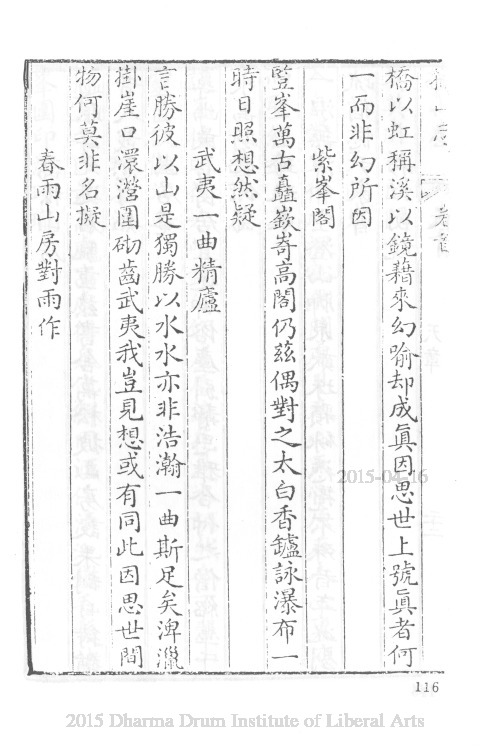 橋以虹稱溪以鏡藉來幻喻却成眞因思世上號眞者何
一而非幻所因
紫峯閣
豎峯萬古矗嶔嵜高閣仍茲偶對之太白香鑪詠瀑布一
時日照想然疑
武夷一曲精廬
言勝彼以山是獨勝以水水亦非浩瀚一曲斯足矣渒濈
掛崖口澴瀯圍砌齒武夷我豈見想或有同此因思世間
物何莫非名擬
春雨山房對雨作
2015-04-16
116
2015 Dharma Drum Institute of Liberal Arts